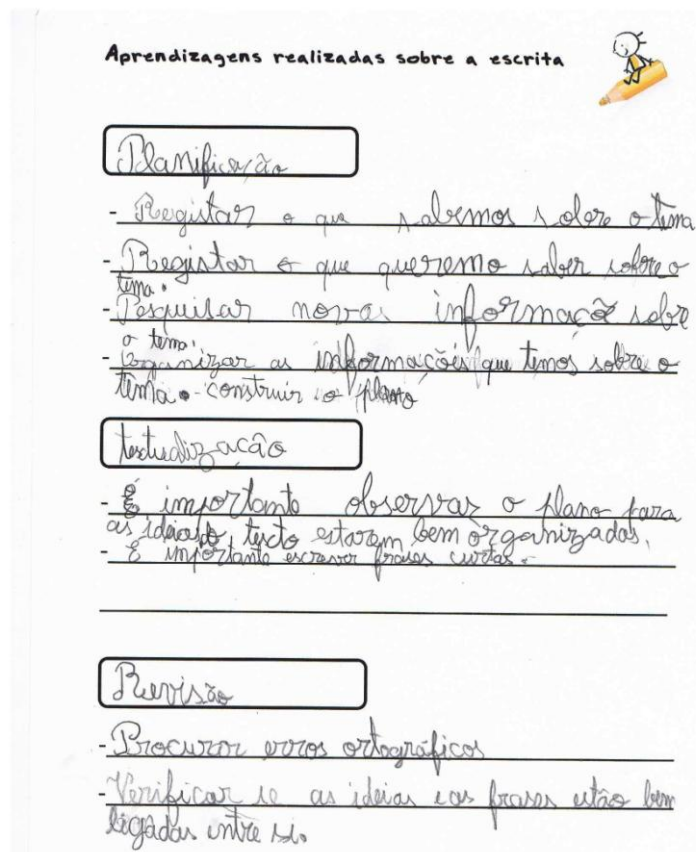 Aprendizagens realizadas sobre a escrita
Planificação
- Registar o que sabemos sobre o tema
- Registar o que queremo saber sobre o
tema.
- Pesquisar novas informaçõe sobre
o tema.
- Organizar as informações que temos sobre o
tema. - construir o plano
textualização
- É importante observar o plano para
as ideias do texto estarem bem organizadas.
- É importante escrever frases curtas.
Revisão
- Procurar erros ortográficos
- Verificar se as ideias e as frases estão bem
ligadas entre si.